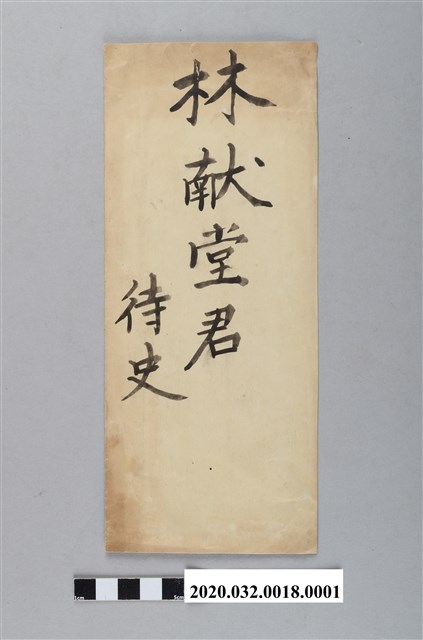 林献堂君
待史
2020.032.0018.0001
1cm
5cm